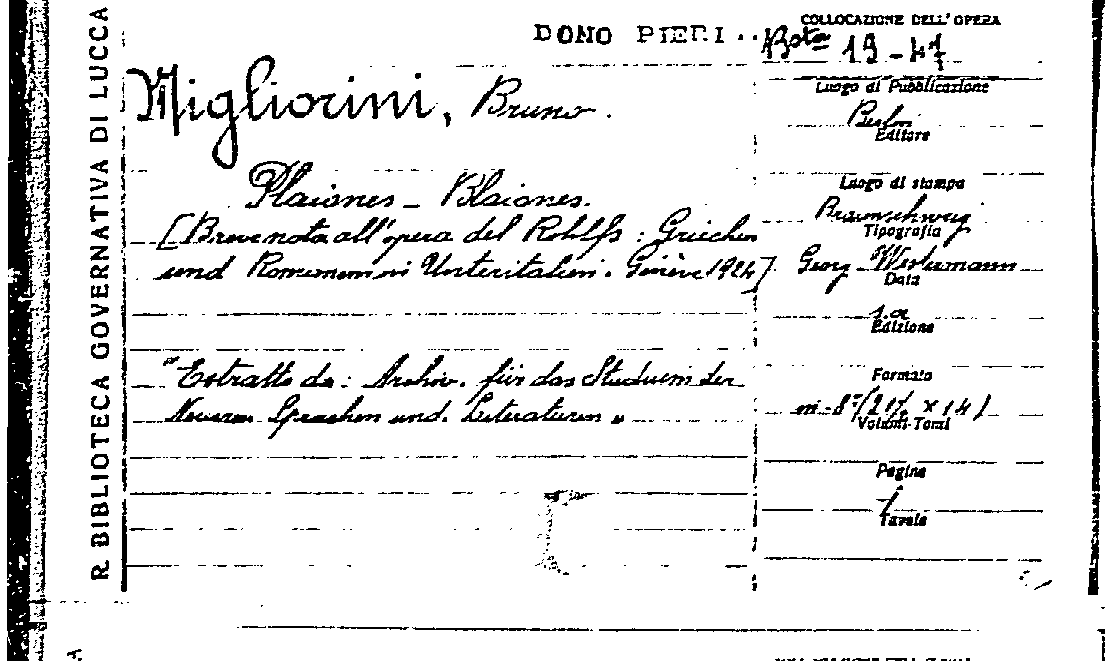 R. BIBLIOTECA GOVERNATIVA DI LUCCA
DONO PIERI
COLLOCAZIONE DELL'OPERA
Bta 19-47
Migliorini, Bruno.
Plaiones - Blaiones.
[Breve nota all'opera del Rohlfs: Griechen
und Romanen in Unteritalien. Genève 1924]
"Estratto da: Archiv. für das Studium der
Neueren Sprachen und. Literaturen"
Luogo di Pubblicazione
Berlin
Editore
Luogo di stampa
Braunschweig
Tipografia
Georg Westermann
Data
s.a
Edizione
Formato
in-8°(21½ x 14)
Volumi-Tomi
Pagine
1
Tavole